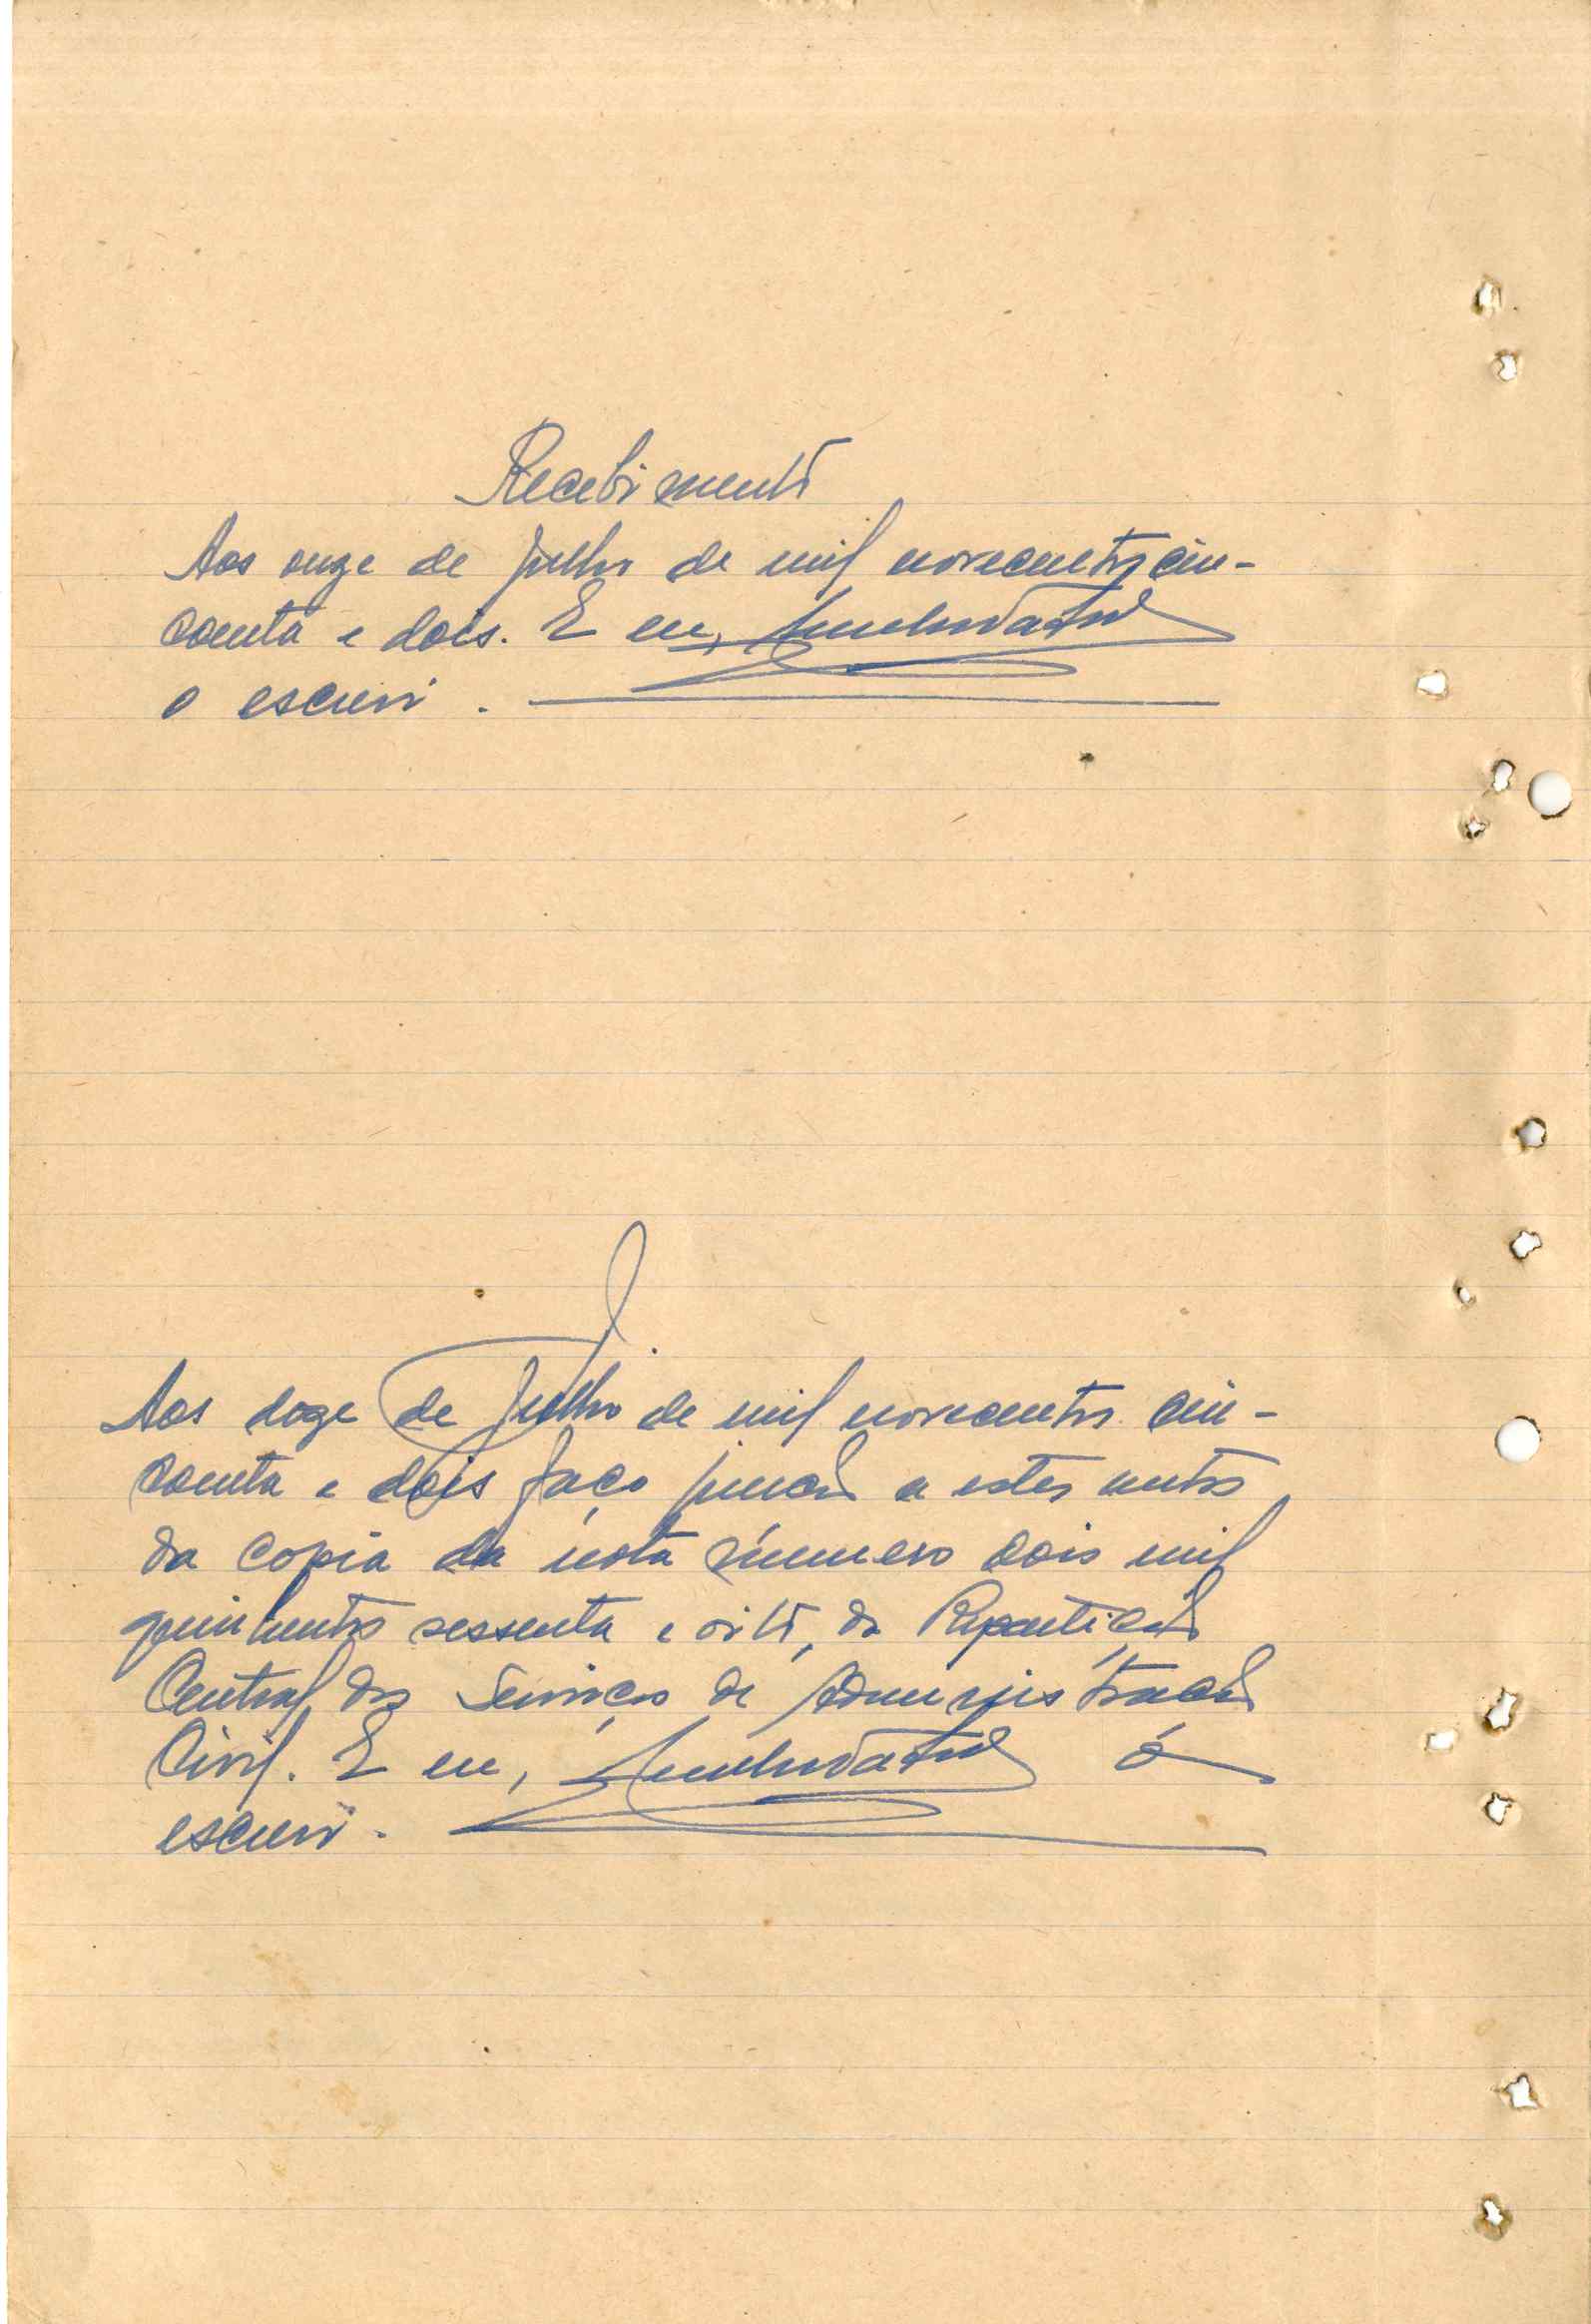 Recebimento
Aos onze de Julho de mil novecentos cin-
coenta e dois. E eu,
o escrevi.
J.
Aos doze de Julho de mil novecentos cin-
coenta e dois faço junção a estes autos
da copia da nota número dois mil
quinhentos sessenta e oito, da Repartição
Central dos Serviços de Administração
Civil. E eu, o
escrevi.